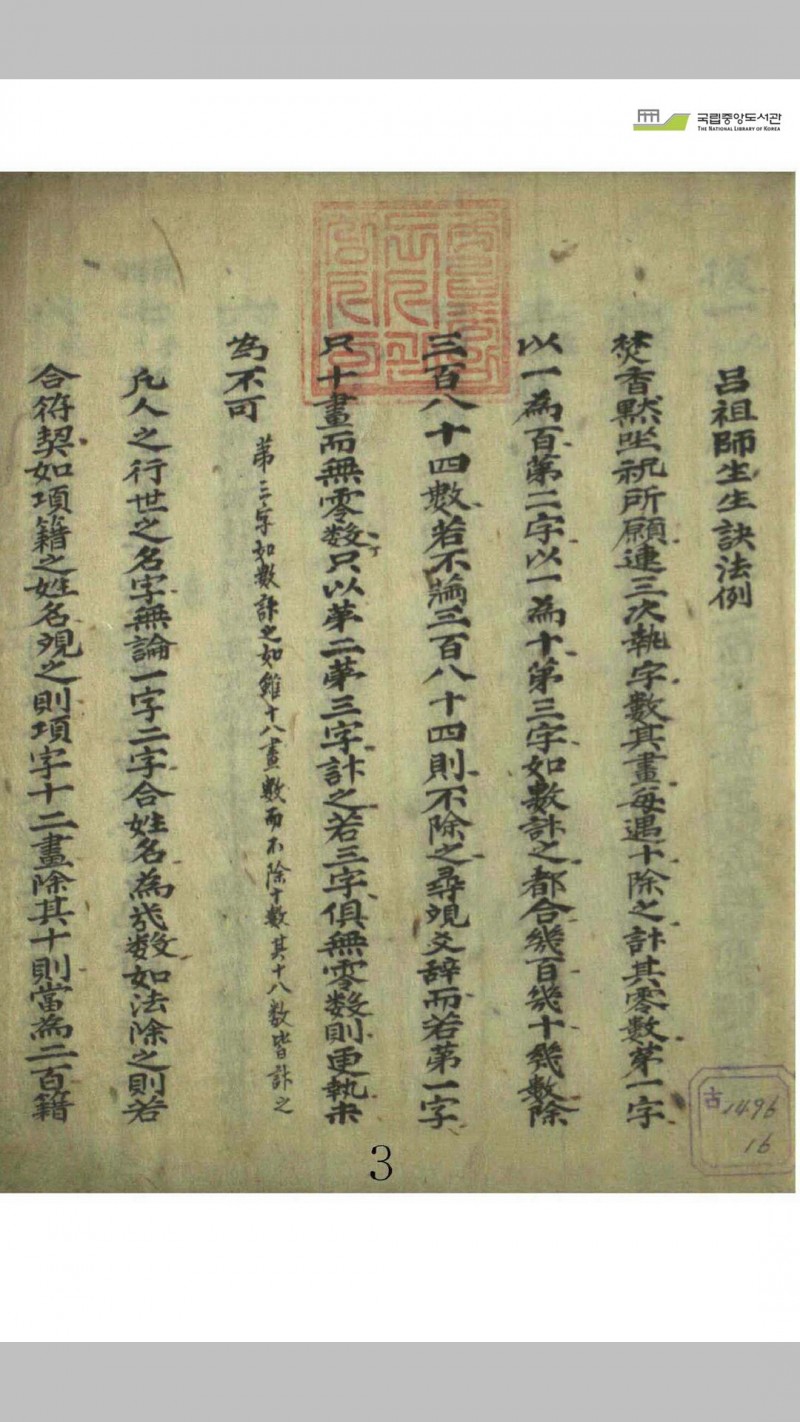 국립중앙도서관
THE NATIONAL LIBRARY OF KOREA
呂祖師生生訣法例
焚香黙坐祝所願連三次執字數其畫每遇十除之計其零數第一字
以一為百第二字以一為十第三字如數計之都合幾百幾十幾數除
三百八十四數若不滿三百八十四則不除之尋覌爻辭而若第一字
只十畫而無零数只以第二第三字計之若三字俱無零数則更執未
為不可
第三字如數計之如雖十八畫數而不除十數其十八数皆計之
凡人之行世之名字無論一字二字合姓名為幾數如法除之則若
合符契如項籍之姓名覌之則項字十二畫除其十則當為二百籍
古1496
16
3